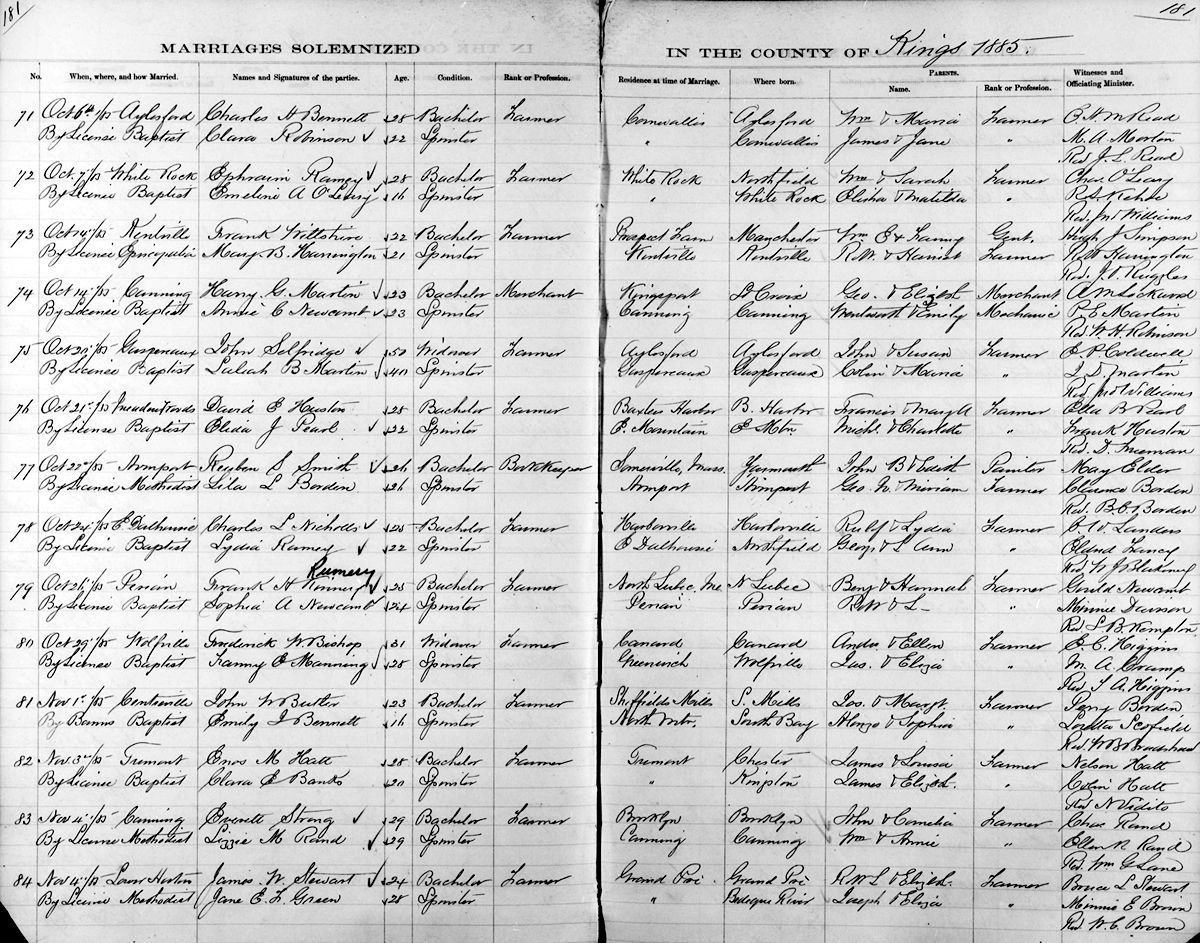 181 181
MARRIAGES SOLEMNIZED IN THE COUNTY OF Kings 1885.
No. When, where, and how Married. Names and Signatures of the parties. Age. Condition. Rank or Profession. Residence at time of Marriage. Where born. PARENTS. Name. Rank or Profession. Witnesses and Officiating Minister.
71 Oct 6th/85 Aylesford Charles H Bennett 28 Bachelor Farmer Cornwallis Aylesford Wm & Maria Farmer
By License Baptist Clara Robinson 22 Spinster " Cornwallis James & Jane " M. A. Morton
Rev J. L. Read
72 Oct. 7/85 White Rock Ephraim Ramey 28 Bachelor Farmer White Rock Northfield Wm & Sarah Farmer Chas. O'Leary
By License Baptist Emeline A O'Leary 16 Spinster " White Rock Elisha & Matilda "
Rev. Jno Williams
73 Oct 14/85 Kentville Frank Wiltshire 22 Bachelor Farmer Prospect Farm Manchester Wm E & Fanny Gent. Hugh J Simpson
By License Episcopalia Mary B Harrington 21 Spinster Kentville Kentville R.W. & Harriet Farmer R W Harrington
Rev. J. O. Ruggles
74 Oct 14/85 Canning Harry G. Martin 23 Bachelor Merchant Kingsport Geo. & Elizbh Merchant A M Lockward
By License Baptist Annie E Newcomb 23 Spinster Canning Canning Wentworth & Emily Mechanic Martin
Rev W. H. Robinson
75 Oct 20/85 Gaspereaux John Selfridge 50 Widower Farmer Aylesford Aylesford John & Susan Farmer E P Coldwell
By License Baptist Luliah B Martin 40 Spinster Gaspereaux Gaspereaux Colin & Maria " Martin
Rev Jno Williams
76 Oct 21/85 David E Huston 28 Bachelor Farmer Baxters Harbor B. Harbor Francis & Mary A Farmer Ella B Pearl
By License Baptist Elida J Pearl 22 Spinster P. Mountain Michl. & Charlotte " Frank Huston
Rev. D. Freeman
77 Oct 22/85 Reuben S Smith 26 Bachelor Bookkeeper Somerville, Mass. Yarmouth John B & Edith Painter May Elder
By License Methodist Lila L Borden 26 Spinster Geo. N. Miriam Farmer Clarence Borden
Rev. B.C. Borden
78 Oct 24/85 E Dalhousie Charles L Nicholls 25 Bachelor Farmer Harborville Harborville Rulf & Lydia Farmer Landers
By License Baptist Lydia Ramey 22 Spinster E Dalhousie Northfield Geog. & L Ann "
Rev W J Blakeney
Rumery
79 Oct 26/85 Frank H 25 Bachelor Farmer North Lubec, Me N Lubec Benj & Hannah Farmer Gould Newcomb
By License Baptist Sophia A Newcomb 24 Spinster R.W & L - " Minnie Dawson
Rev S. B. Kempton
80 Oct 29/85 Wolfville Frederick W. Bishop 31 Widower Farmer Canard Canard Andw & Ellen Farmer E. C. Higgins
By License Baptist Fanny E Manning 28 Spinster Greenwich Wolfville Jas. & Eliza " M. A. Cramp
Rev T A. Higgins
81 Nov 1/85 Centreville John W Butler 23 Bachelor Farmer Sheffields Mills S. Mills Jos. & Margt. Farmer Perry Borden
By Banns Baptist Emily J Bennett 16 Spinster North Mtn. South Bay Alonzo & Sophia " Loretta Scofield
Rev. W B Bradshaw
82 Nov 3/85 Tremont Enos M Hatt 28 Bachelor Farmer Tremont Chester James & Louisa Farmer Nelson Hatt
By License Baptist Clara E Banks 20 Spinster " Kingston James & Elizbh. " Colin Hatt
Rev N Vidito
83 Nov 4/85 Canning Everett Strong 29 Bachelor Farmer Brooklyn Brooklyn John & Cornelia Farmer Chas. Rand
By License Methodist Lizzie M Rand 29 Spinster Canning Canning Wm & Annie " Ellen R Rand
Rev Wm G Lane
84 Nov 4/85 Lower Horton James W. Stewart 24 Bachelor Farmer Grand Pré Grand Pré R.W.L & Elizbh. Farmer Bruce L Stewart
By License Methodist Jane E. F. Green 28 Spinster " Bedeque River Joseph & Eliza " Minnie E Brown
Rev. W. C. Brown